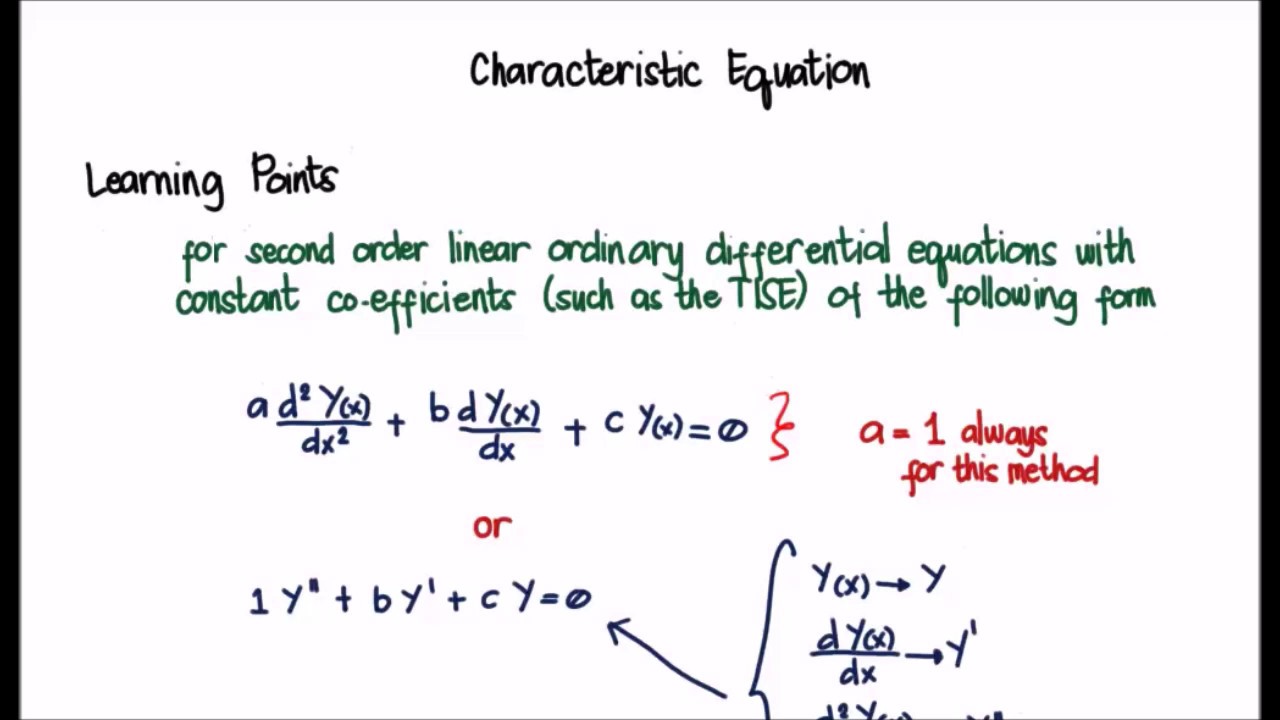 Characteristic Equation
Learning Points
for second order linear ordinary differential equations with
constant co-efficients (such as the TISE) of the following form
a d²Y(x)/dx² + b dY(x)/dx + c Y(x) = 0
a = 1 always
for this method
or
1 Y" + b Y' + c Y = 0
Y(x) → Y
dY(x)/dx → Y'